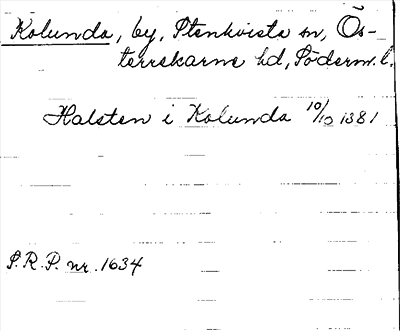 Kolunda, by, Stenkvista sn, Ös-
terrekarne hd, Söderm. l.
Halsten i Kolunda 10/10 1381
S.R.P. nr. 1634